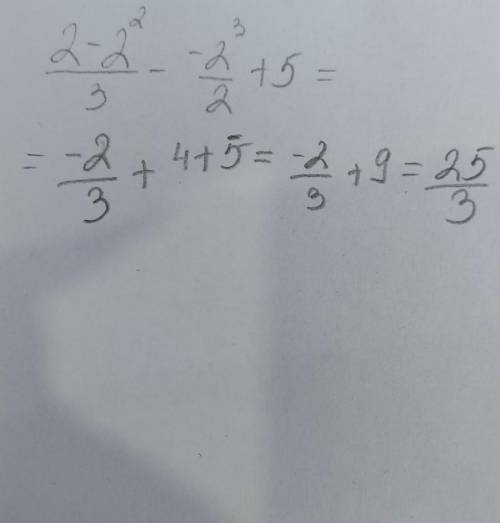 (2-2²)/3 - (-2³)/2 + 5 =
= -2/3 + 4+5 = -2/3 + 9 = 25/3